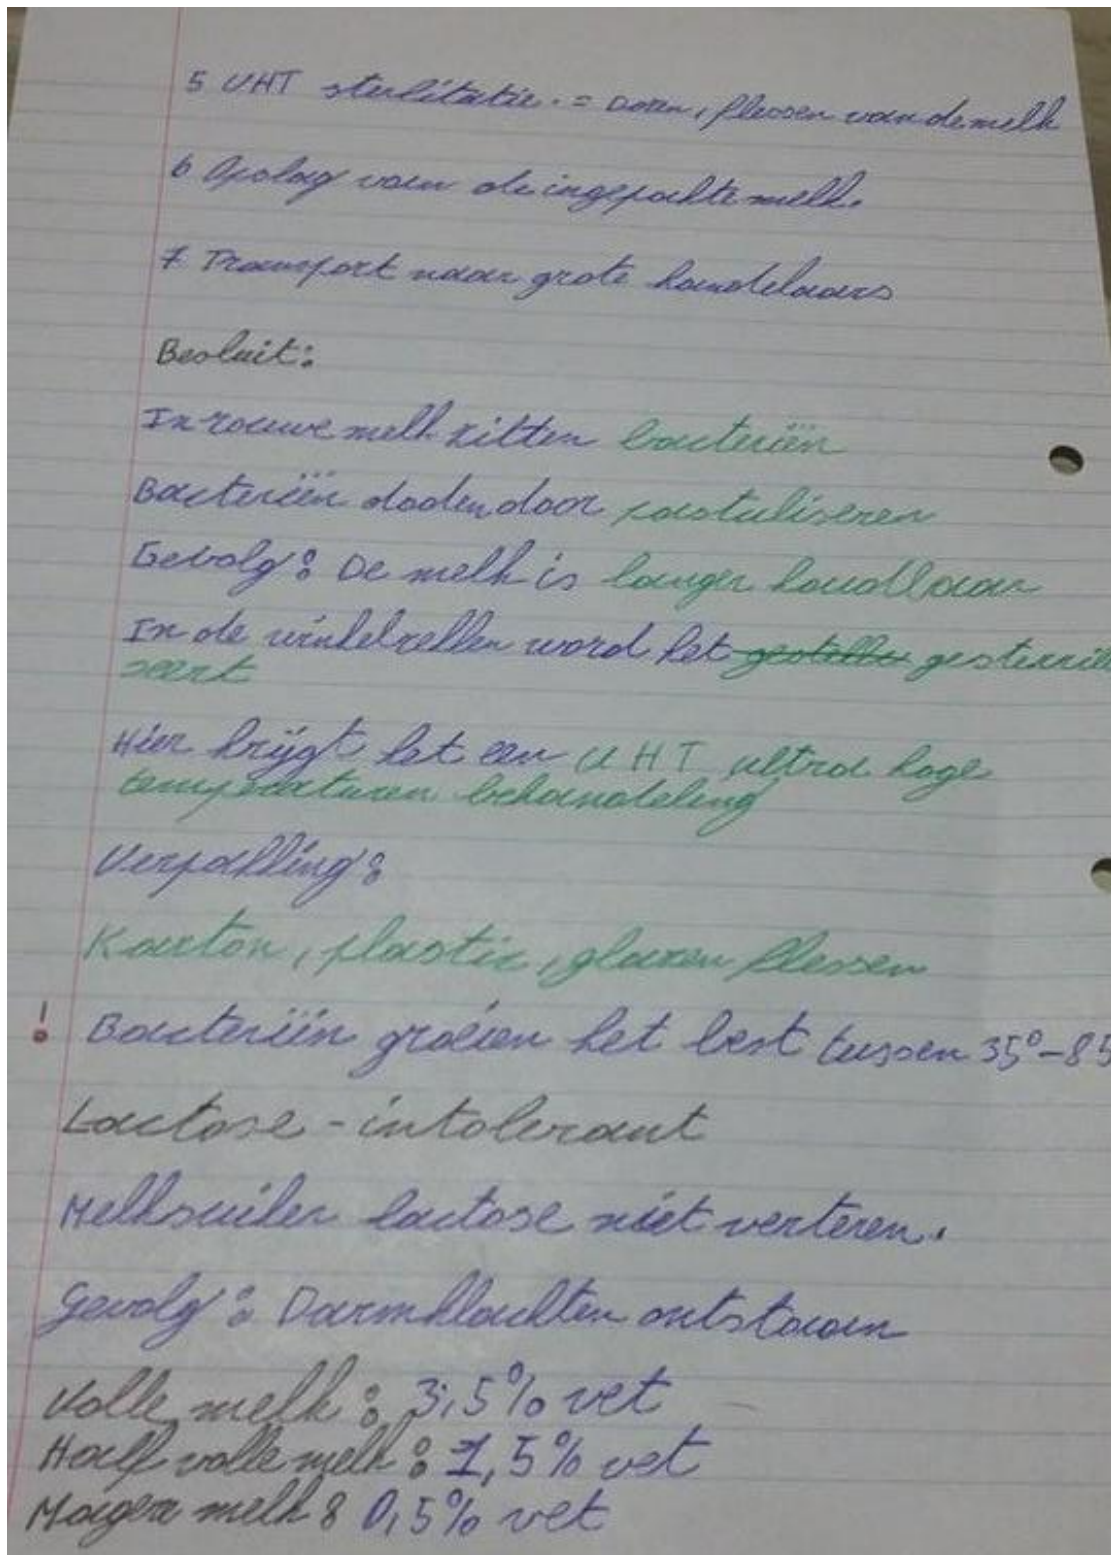 5 UHT sterlitatie. = Dozen, flessen van de melk
6 Opslag van de ingepakte melk.
7. Transport naar grote handelaars
Besluit:
In rauwe melk zitten bacteriën
Bacteriën doden door pastuliseren
Gevolg: De melk is langer houdbaar
In de winkelrekken word het gesterili
seert
Hier krijgt het een UHT ultra hoge
temperaturen behandeling
Verpakking:
Karton, plastic, glazen flessen
! Bacteriën groeien het best tussen 35°-85
Lactose-intolerant
Melksuiker lactose niet verteren.
Gevolg: Darmklachten ontstaan
Volle melk: 3,5% vet
Half volle melk: 1,5% vet
Mager melk: 0,5% vet